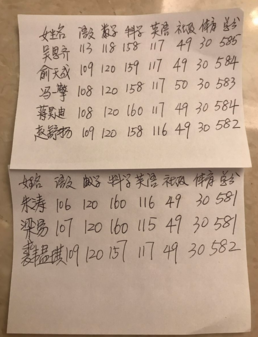 姓名 语文 数学 科学 英语 社政 体育 总分
吴思齐 113 118 158 117 49 30 585
俞天成 109 120 159 117 49 30 584
冯擎 108 120 158 117 50 30 583
蒋昊迪 108 120 160 117 49 30 584
赵舒扬 109 120 158 116 49 30 582
姓名 语文 数学 科学 英语 社政 体育 总分
朱涛 106 120 160 116 49 30 581
梁易 107 120 160 115 49 30 581
109 120 157 117 49 30 582